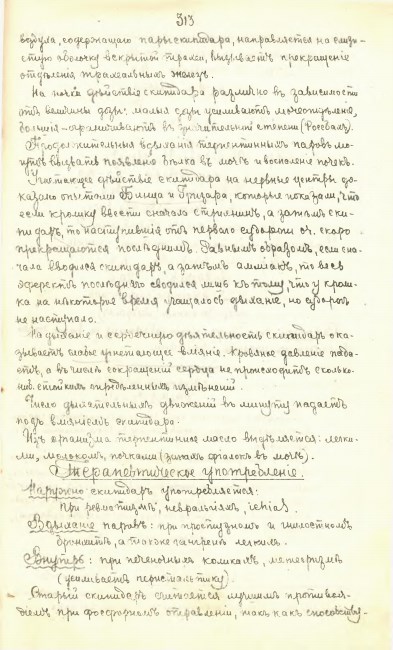 313
воздуха, содержащаго пары скипидара, направляется на слизи-
стую оболочку вскрытой трахеи, вызываетъ прекращение
отделения трахеальныхъ железъ.
На почки действие скипидара различно въ зависимости
отъ величины дозы: малыя дозы усиливаютъ мочеотделение,
большия - ограничиваютъ въ значительной степени (Россбахъ).
Продолжительныя вдыхания терпентинныхъ паровъ мо-
гутъ вызвать появление белка въ моче и воспаление почекъ.
Угнетающее действие скипидара на нервные центры до-
казано опытами Бинца и Гризара, которые показали, что
если кролику ввести сначала стрихнинъ, а затемъ ски-
пидаръ, то наступившия отъ перваго судороги оч. скоро
прекращаются последнимъ. Равнымъ образомъ, если сна-
чала вводился скипидаръ, а затемъ аммиакъ, то весь
эффектъ последняго сводился лишь къ тому, что у кроли-
ка на некоторое время учащалось дыхание, но судорогъ
не наступало.
На дыхание и сердечную деятельность скипидаръ ока-
зываетъ слабое угнетающее влияние. Кровяное давление пада-
етъ, а въ числе сокращений сердца не происходитъ сколько-
ниб. стойкихъ определенныхъ изменений.
Число дыхательныхъ движений въ минуту падаетъ
подъ влияниемъ скипидара.
Изъ организма терпентинное масло выделяется: легки-
ми, молокомъ, почками (запахъ фиалокъ въ моче).
Терапевтическое употребление.
Наружно скипидаръ употребляется:
при ревматизме, невралгияхъ, ischias.
Вдыхание паровъ: при простудномъ и гнилостномъ
бронхите, а также гангрене легкихъ.
Внутрь: при печеночныхъ коликахъ, метеоризме
(усиливаетъ перистальтику).
Старый скипидаръ считается лучшимъ противоя-
диемъ при фосфорномъ отравлении, такъ какъ способству-